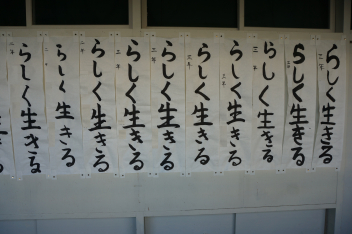 らしく生きる
らしく生きる
らしく生きる
らしく生きる
らしく生きる
らしく生きる
らしく生きる
らしく生きる
らしく生きる